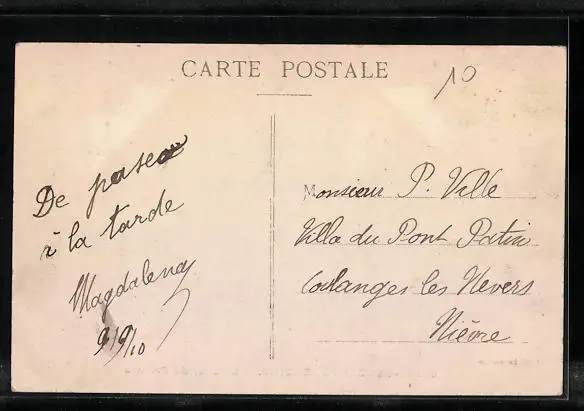 CARTE POSTALE
10
De paseo
à la tarde
Magdalena
9/9/10
Monsieur P. Ville
Villa du Pont Patin
Coulanges les Nevers
Nièvre